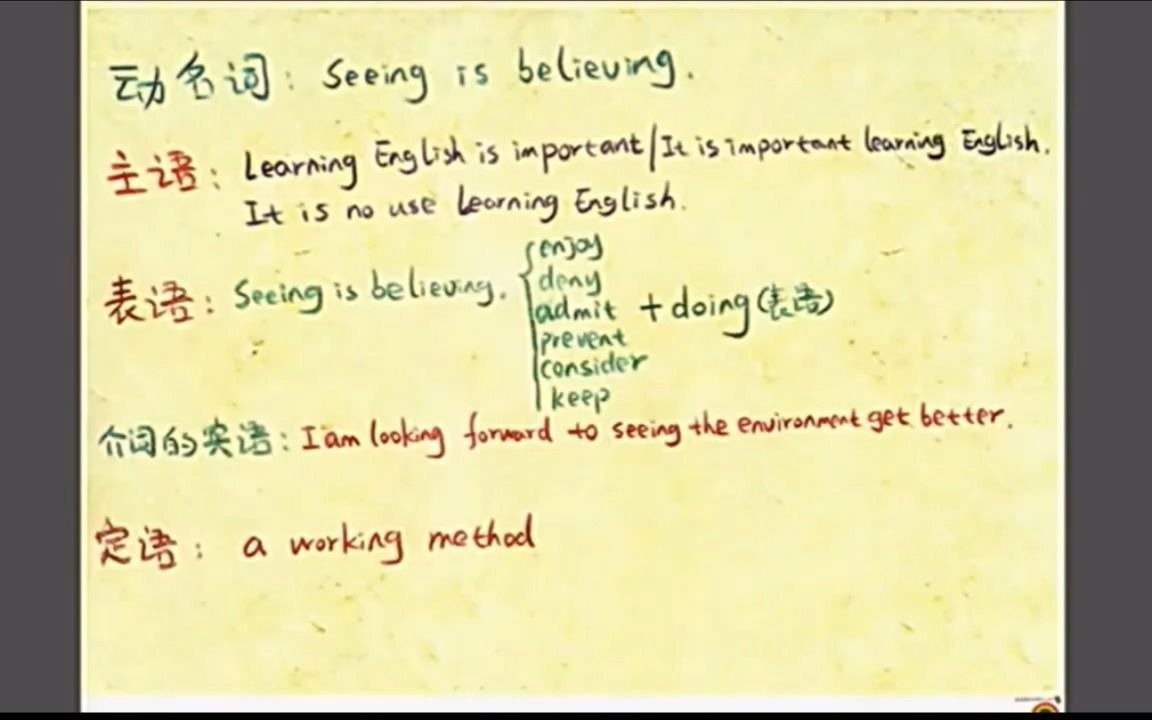 动名词: Seeing is believing.
主语: Learning English is important/It is important learning English.
It is no use learning English.
表语: Seeing is believing.
enjoy
deny
admit + doing (表语)
prevent
consider
keep
介词的宾语: I am looking forward to seeing the environment get better.
定语: a working method